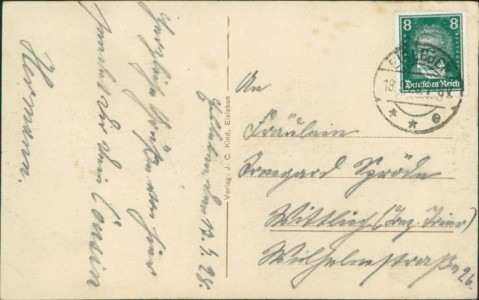 Eisleben den 13.3.28.
Herzliche Grüße von hier
sendet Dir dein Cousin
Hermann.
Verlag: J. C. Kind, Eisleben
8 8
Deutsches Reich
18
* * e
An
Fräulein
Irmgard Spröde
Wittlich (Bez. Trier)
Wilhelmstraße 26.